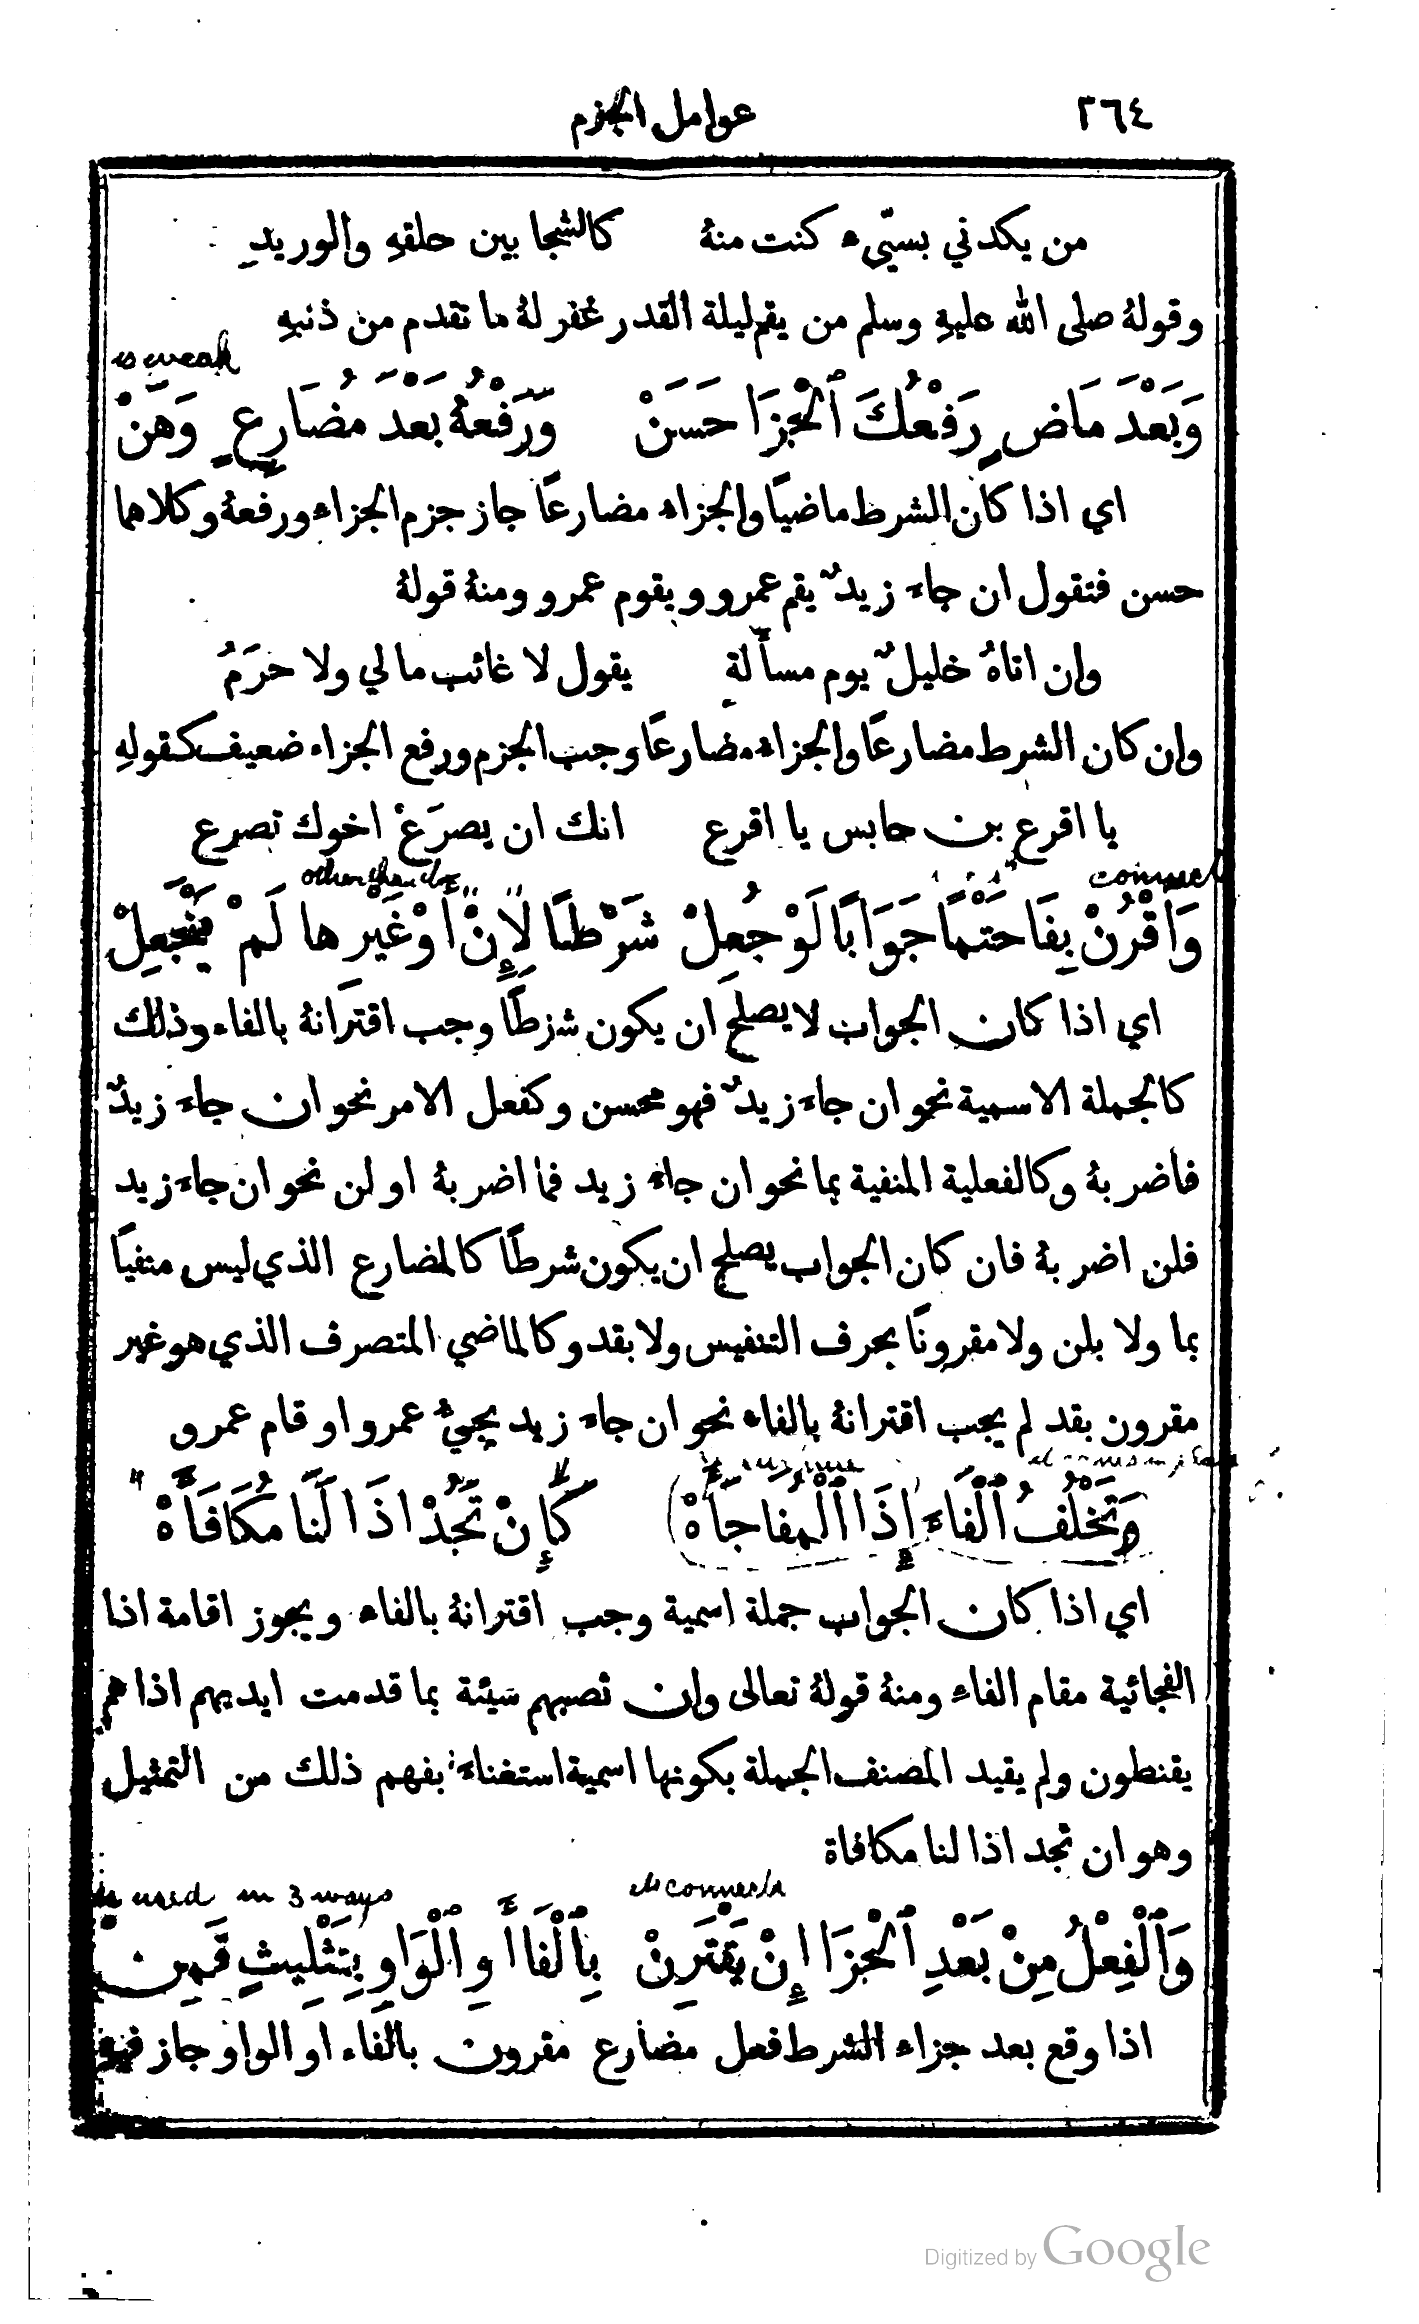 ٢٦٤ عوامل الجزم
من يكدني بسيّىء كنت منهُ كالشجا بين حلقهِ والوريدِ
وقولهُ صلى الله عليهِ وسلم من يقم ليلة القدر غفر لهُ ما تقدم من ذنبهِ
is weak
وَبَعْدَ مَاضٍ رَفْعُكَ ٱلْجَزَا حَسَنْ وَرَفْعُهُ بَعْدَ مُضَارِعٍ وَهَنْ
اي اذا كان الشرط ماضيًا والجزاء مضارعًا جاز جزم الجزاء ورفعهُ وكلاهما
حسن فتقول ان جاءَ زيدٌ يقم عمرو ويقوم عمرو ومنهُ قولهُ
وان اتاهُ خليلٌ يوم مسأَلةٍ يقول لا غائب مالي ولا حَرَمُ
وان كان الشرط مضارعًا والجزاء مضارعًا وجب الجزم ورفع الجزاء ضعيف كقولهِ
يا اقرع بن حابس يا اقرع انك ان يصرَعْ اخوك تصرع
other than de connect
وَاقْرُنْ بِفَا حَتْمًا جَوَابًا لَوْ جُعِلْ شَرْطًا لِإِنْ أَوْ غَيْرِها لَمْ يَنْجَعِلْ
اي اذا كان الجواب لا يصلح ان يكون شرطًا وجب اقترانهُ بالفاء وذلك
كالجملة الاسمية نحو ان جاءَ زيدٌ فهو محسن وكفعل الامر نحو ان جاءَ زيدٌ
فاضربهُ وكالفعلية المنفية بما نحو ان جاءَ زيد فما اضربهُ او لن نحو ان جاءَ زيد
فلن اضربهُ فان كان الجواب يصلح ان يكون شرطًا كالمضارع الذي ليس منفيًا
بما ولا بلن ولا مقرونًا بحرف التنفيس ولا بقد وكالماضي المتصرف الذي هو غير
مقرون بقد لم يجب اقترانهُ بالفاء نحو ان جاءَ زيد يجيءُ عمرو او قام عمرو
وَتَخْلُفُ ٱلْفَاءَ إِذَا ٱلْمُفَاجَأَهْ كَإِنْ تَجُدْ اذَا لَنَا مُكَافَأَهْ
اي اذا كان الجواب جملة اسمية وجب اقترانهُ بالفاء ويجوز اقامة اذا
الفجائية مقام الفاء ومنهُ قولهُ تعالى وان تصبهم سيئة بما قدمت ايديهم اذا هم
يقنطون ولم يقيد المصنف الجملة بكونها اسمية استغناءً بفهم ذلك من التمثيل
وهو ان تجد اذا لنا مكافاة
is used in 3 ways is connected
وَٱلْفِعْلُ مِنْ بَعْدِ ٱلْجَزَا إِنْ يَقْتَرِنْ بِٱلْفَا أَوِ ٱلْوَاوِ بِتَثْلِيثٍ قَمِنْ
اذا وقع بعد جزاء الشرط فعل مضارع مقرون بالفاء او الواو جاز فيهِ
Digitized by Google